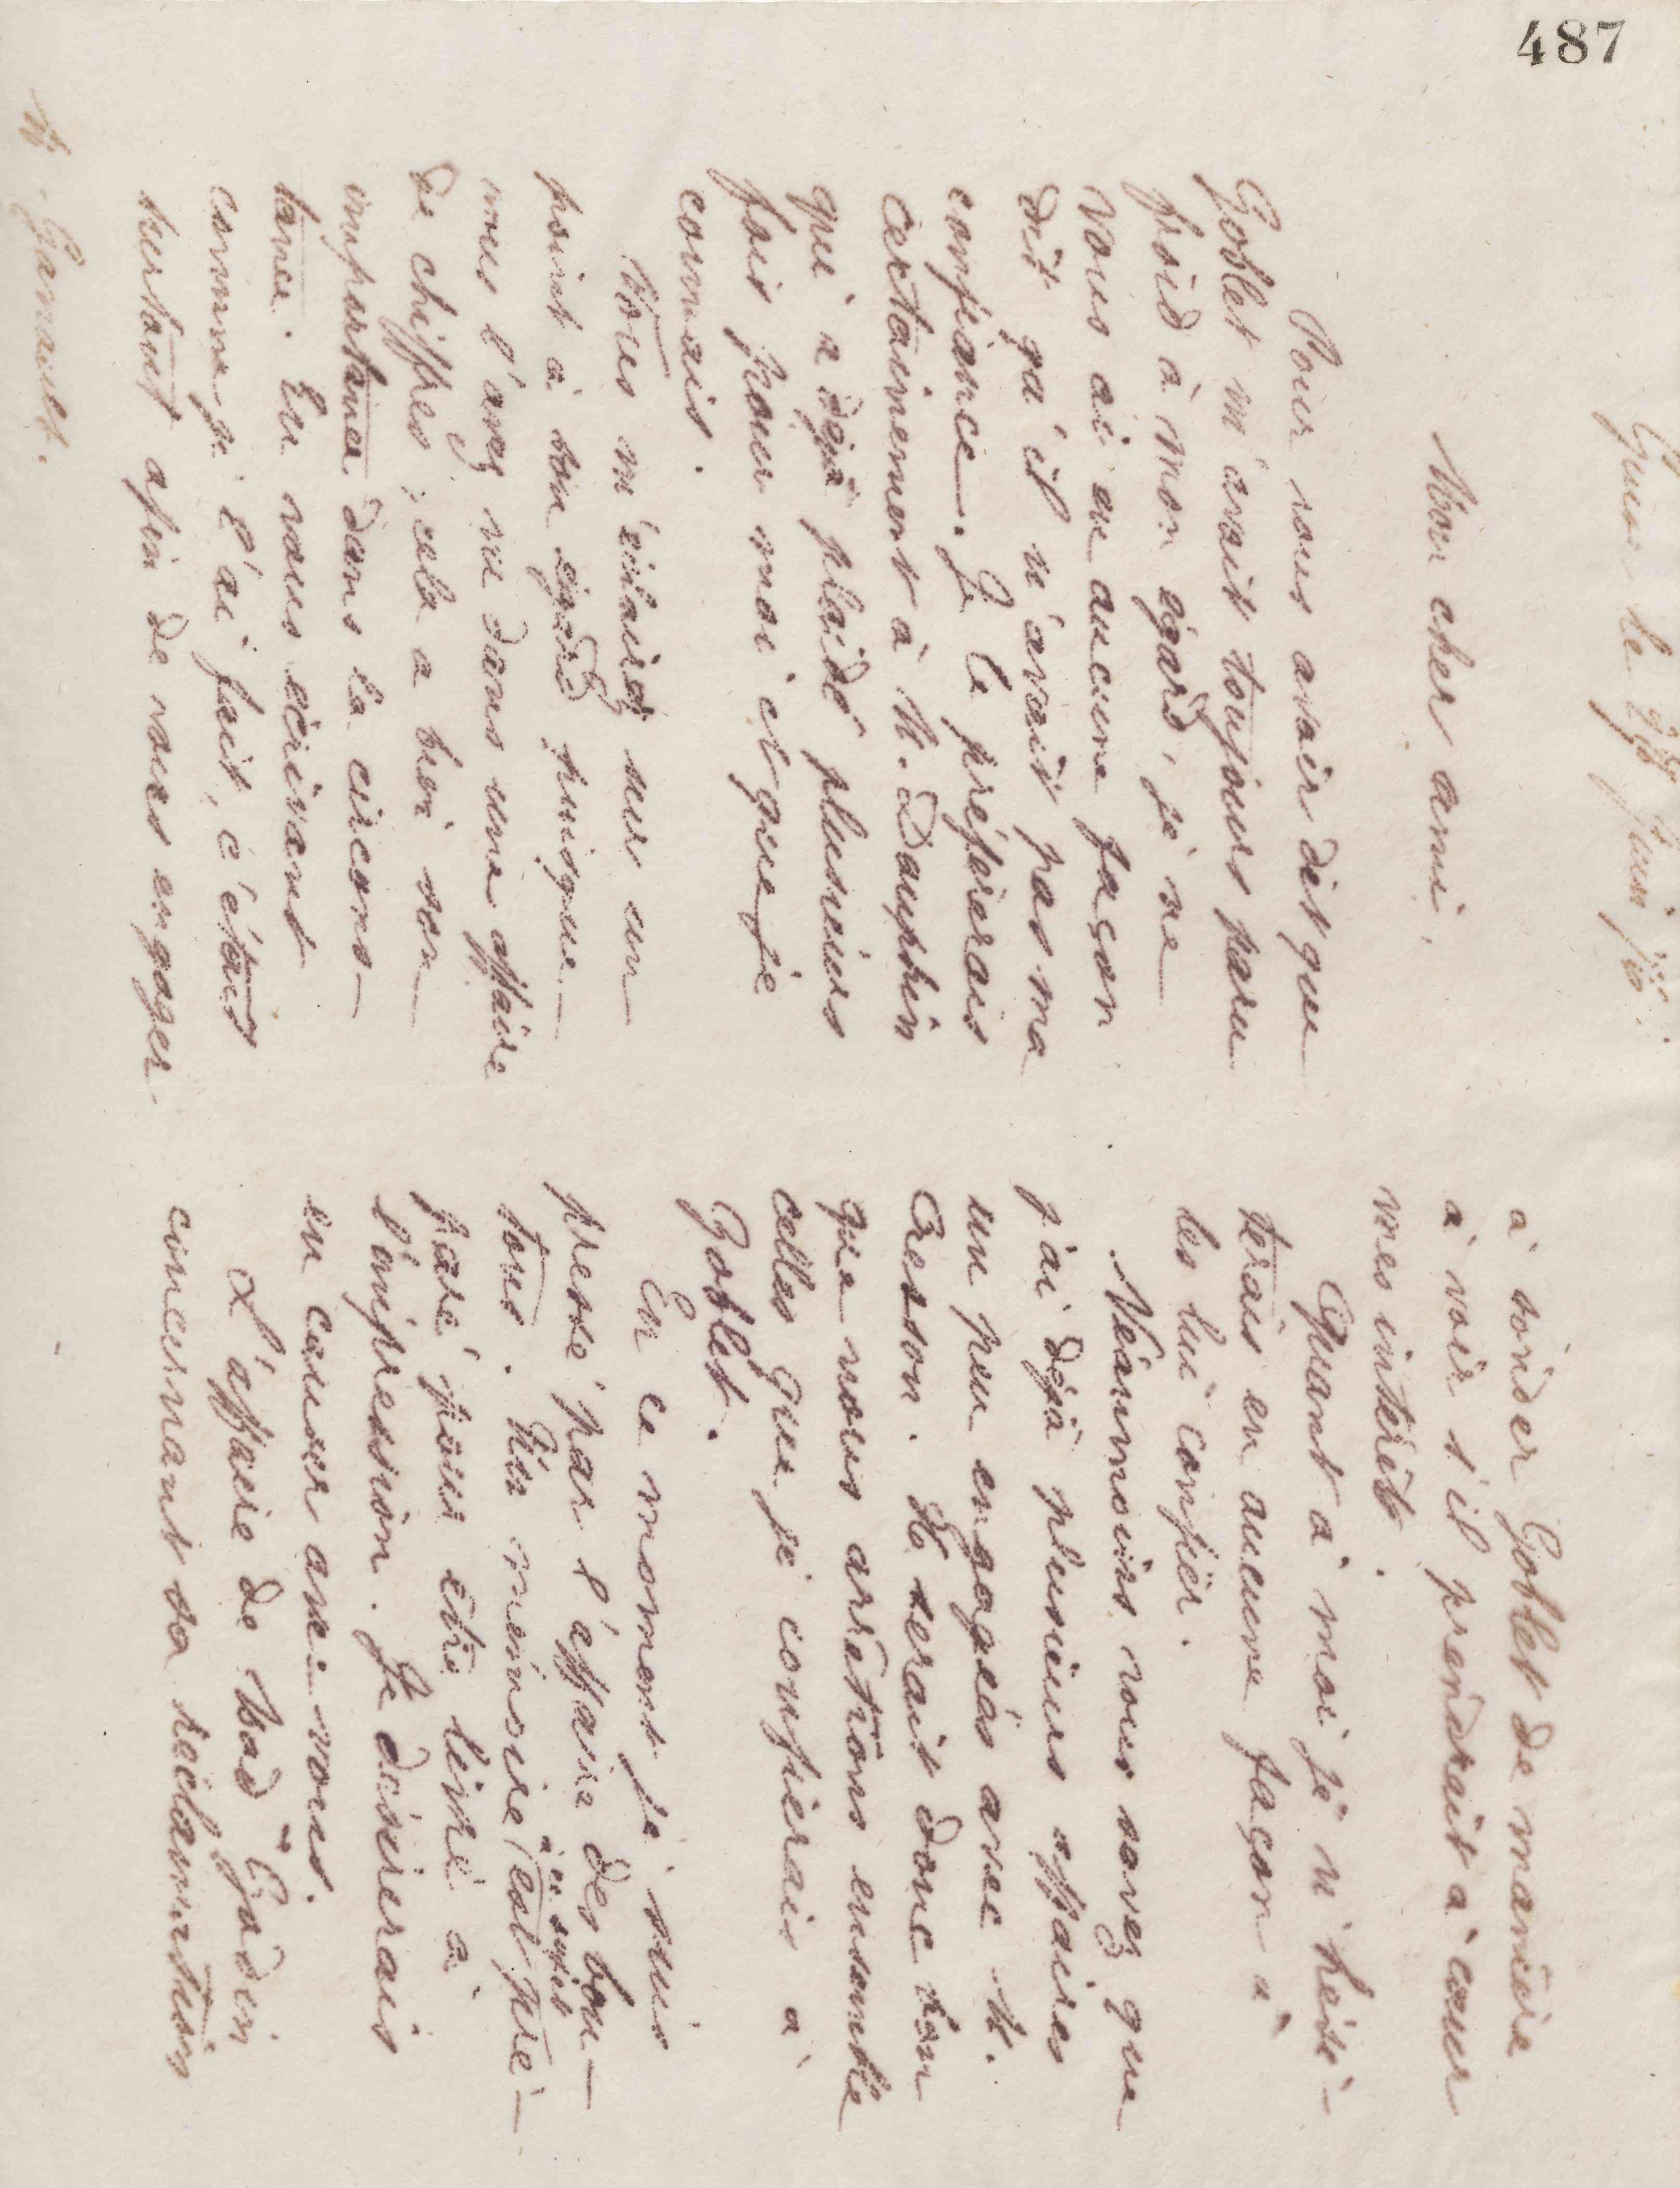 487
Guise le 29 juin 78.
Mon cher ami,
Pour vous avoir dit que
Goblet m'avait toujours paru
froid à mon égard, je ne
vous ai en aucune façon
dit qu'il n'avait pas ma
confiance. Je le préférerais
certainement à M. Dauphin
qui a déjà plaidé plusieurs
fois pour moi et que je
connais.
Vous m'éclairez sur un
point à son égard puisque
vous l'avez vu dans une affaire
de chiffres ; cela a bien son
importance dans la circons-
tance. En vous écrivant
comme je l'ai fait, c'était
surtout afin de vous engager
M. Ganault.
à sonder Goblet de manière
à voir s'il prendrait à cœur
mes intérêts.
Quant à moi je n'hési-
terais en aucune façon à
les lui confier.
Néanmoins vous savez que
j'ai déjà plusieurs affaires
un peu engagées avec M.
Cresson. Il serait donc bon
que nous arrêtions ensemble
celles que je confierais à
Goblet.
En ce moment je suis
pressé par l'affaire des bou-
tons. Un mémoire à ce sujet est pré-
paré pour être livré à
l'impression. Je désirerais
en causer avec vous.
L'affaire de Mad. Godin
concernant sa réclamation